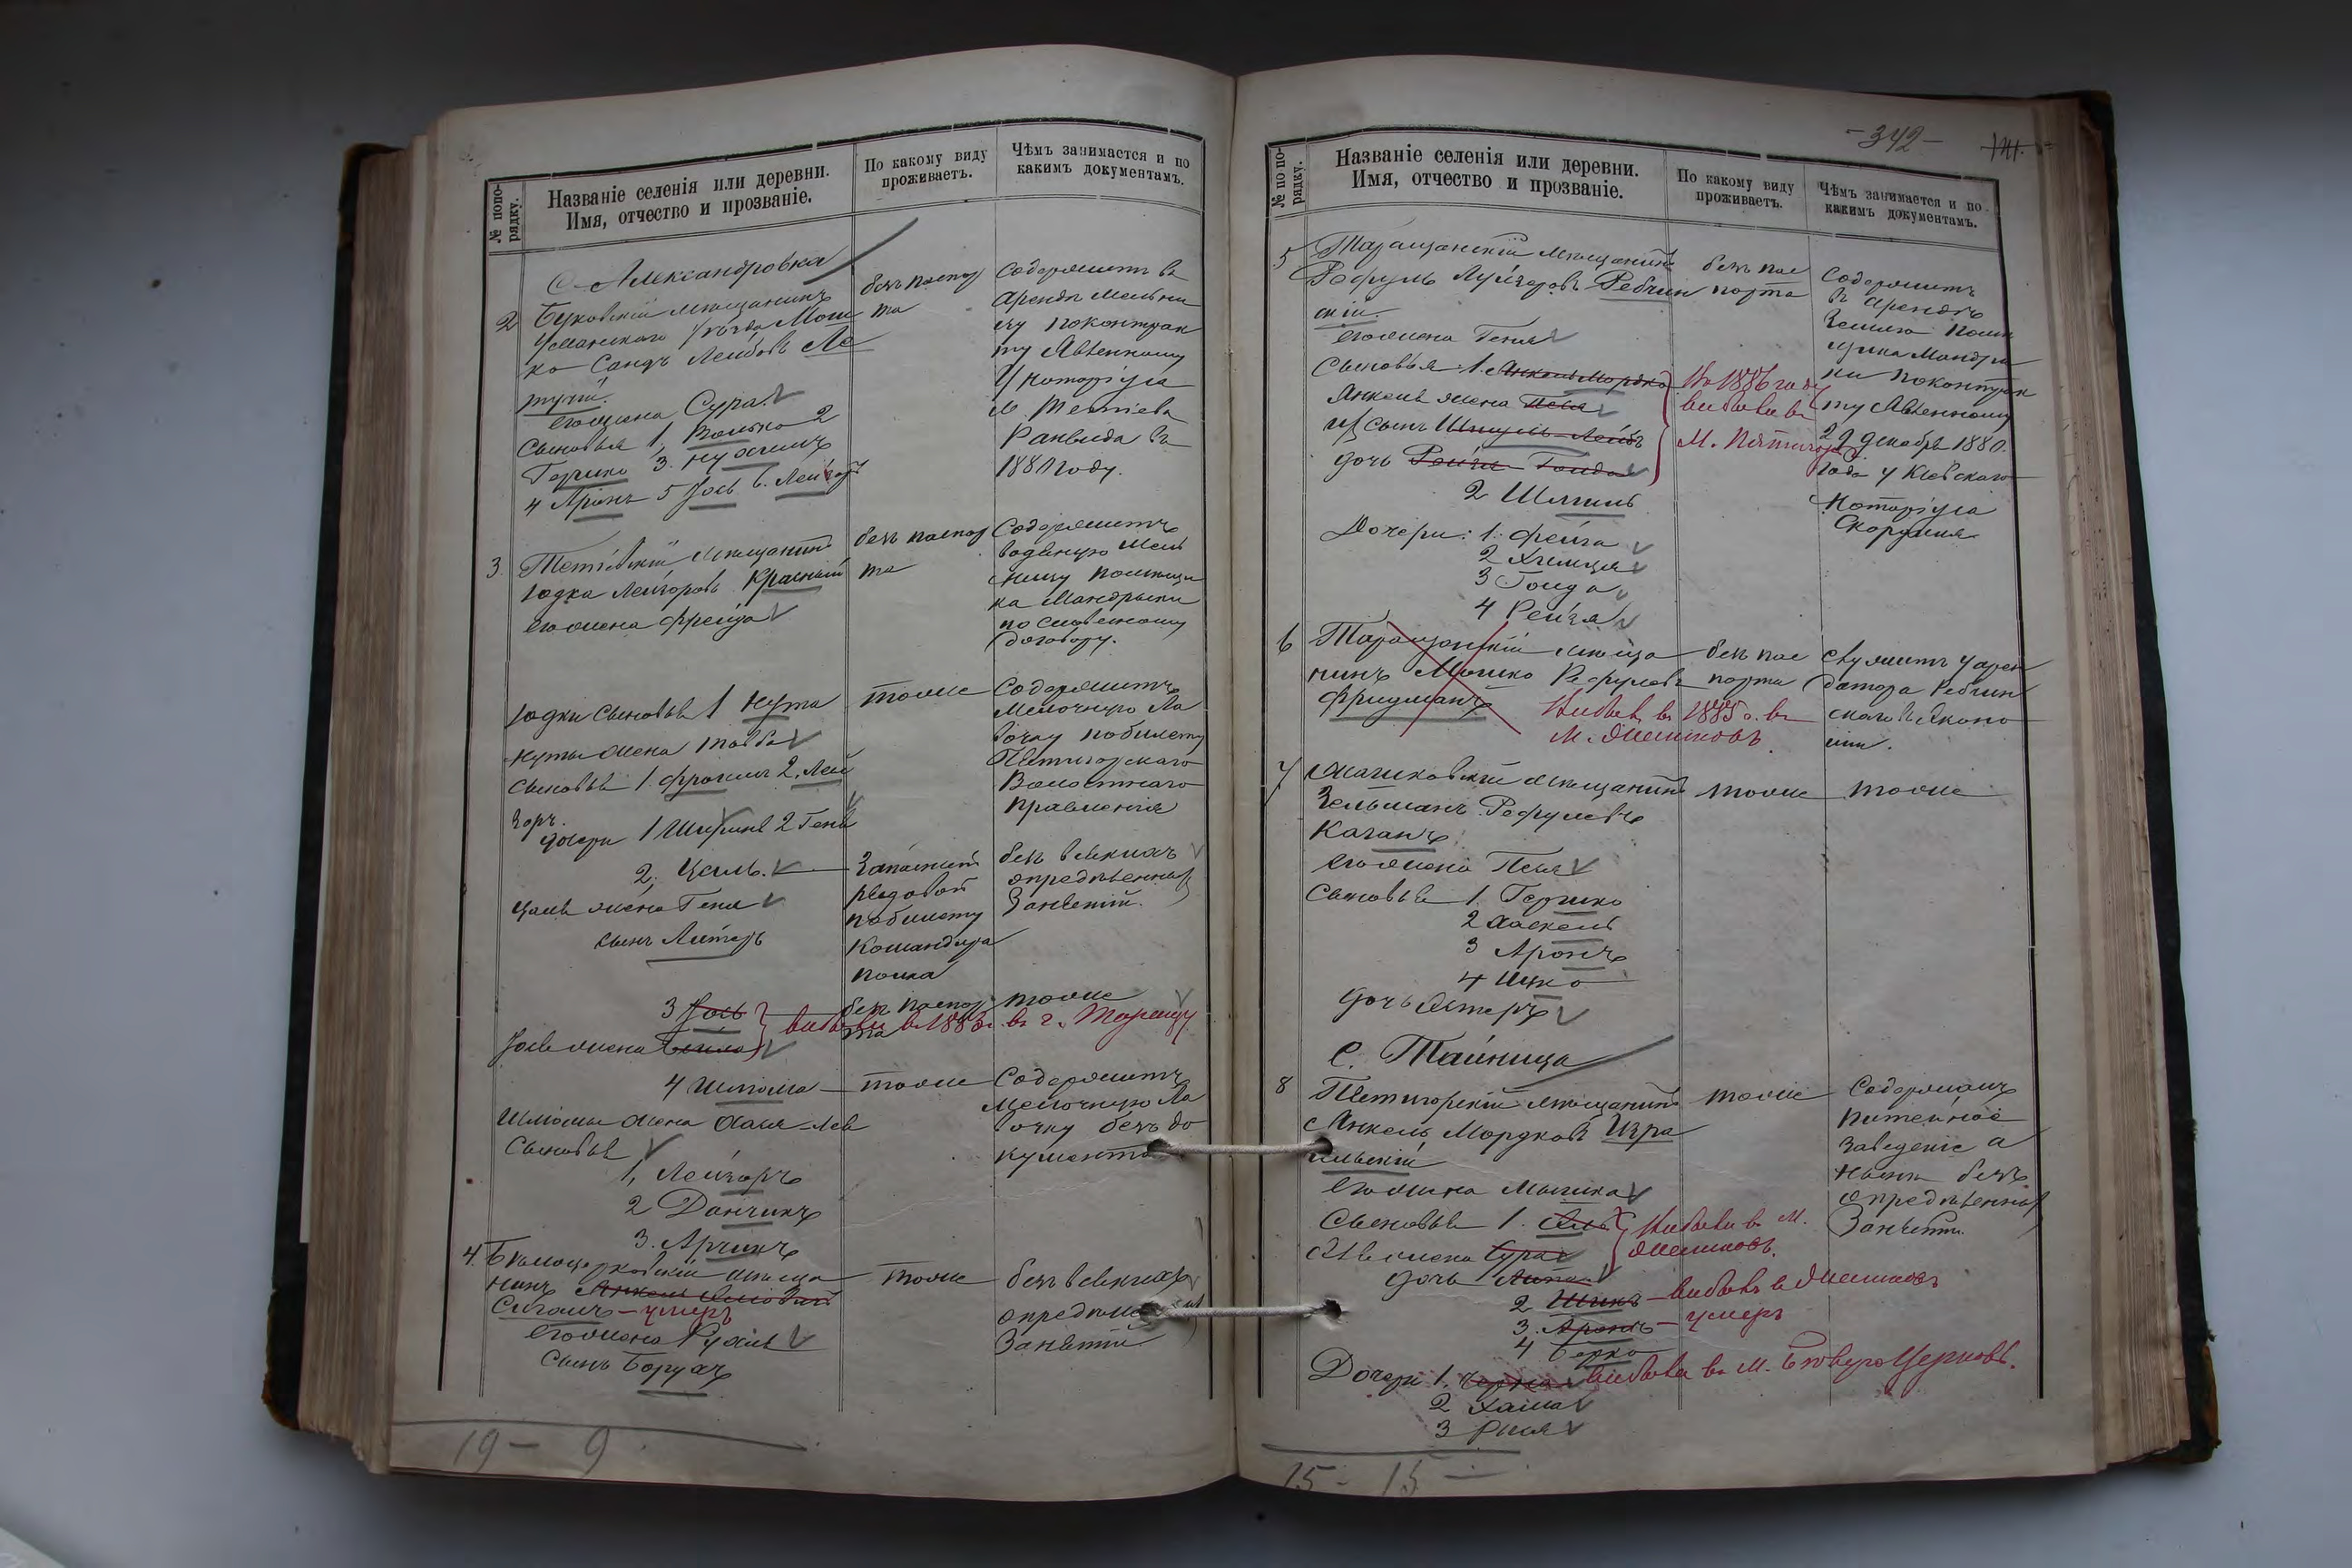 № попо-
рядку.
Названіе селенія или деревни.
Имя, отчество и прозваніе.
По какому виду
проживаетъ.
Чѣмъ занимается и по
какимъ документамъ.
С. Александровка
2
Буковскій мѣщанинъ
Уманскаго уѣзда Мош
ко Сандъ Лейбовъ
его жена Сура
Сыновья 1, Волько 2
Гершко 3. Нухимъ
4 Аронъ 5 Іось 6. Лейзоръ
безъ паспор
та
Содержитъ въ
арендѣ мельни
цу по контрак
ту явленному
у нотаріуса
м. Тетіева
въ
1881 году.
3.
Тетіевскій мѣщанинъ
Юдка Лейзоровъ Красный
его жена Фрейда
безъ паспор
та
Содержитъ
водяную мель
ницу помѣщи
ка Мандрыки
по словесному
договору.
Юдки сыновья 1 Нута
Нуты жена Тавба
сыновья 1. Фроимъ 2. Лей
зоръ.
дочери 1 Шифра 2 Геня
тоже
Содержитъ
мелочную ла
вочку по билету
Пятигорскаго
Волостнаго
правленія
2, Цаль.
Цаля жена Геня
сынъ Литеръ
Запасный
рядовой
по билету
командира
полка
безъ всякихъ
опредѣленных
занятій.
3 Іось
Іося жена Бейла
безъ паспор
та
тоже
выбыли въ 1883 г. въ г. Таращу
4 Шлома
Шломы жена Хая-Лея
Сыновья
1, Лейзоръ
2 Данчикъ
3. Арчикъ
тоже
Содержитъ
мелочную ла
вочку безъ до
кументо
4.
Бѣлоцерковскій мѣща
нинъ Янкель
Сигалъ – умеръ
его жена Рухля
сынъ Борухъ
тоже
безъ всякихъ
опредѣлен
занятій
19 – 9.
– 342 –
№ по по-
рядку.
Названіе селенія или деревни.
Имя, отчество и прозваніе.
По какому виду
проживаетъ.
Чѣмъ занимается и по
какимъ документамъ.
5
Таращанскій мѣщанинъ
Рефуль Лузеровъ Ребчин
скій.
его жена Геня
Сыновья: 1. Янкель Мордко
Янкеля жена Песя
их сынъ Шмуль-Лейбъ
дочь Рейзя Голда
2 Шмиль
Дочери: 1. Фейга
2 Химця
3 Голда
4 Рейзя
безъ пас
порта
Въ 1886 году
выбыли въ
м. Пятигоры
Содержитъ
въ арендѣ
землю помѣ
щика Мандры
ки по контрак
ту явленному
29 декабря 1880.
года у Кіевскаго
Нотаріуса
6
Таращанскій мѣща
нинъ Мошко Рефулевъ
Фридманъ
безъ пас
порта
Выбылъ въ 1885 г. въ
м. Жашковъ.
служитъ у арен
датора Ребчин
скаго въ эконо
міи.
7
Жашковскій мѣщанинъ
Зельманъ Рефулевъ
Каганъ
его жена Песя
Сыновья 1. Гершко
2 Хаскель
3 Аронъ
4 Ицко
дочь Эстеръ
тоже
тоже
С. Тайница
8
Пятигорскій мѣщанинъ
Янкель Мордковъ Изра
ильскій
его жена Малика
Сыновья 1.
жена Сура
дочь
2 Шикъ – выбылъ въ Жашковъ
3. Аронъ – умеръ
4 Берко
Дочери 1. выбыла въ м. Бѣлую Церковь.
2 Хана
3 Рися
Выбыли въ м.
Жашковъ.
тоже
Содержалъ
питейное
заведеніе а
нынѣ безъ
опредѣленных
занятій.
15 – 15 –